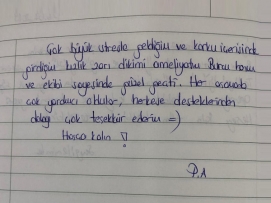 Çok büyük stresle geldiğim ve korku içerisinde
girdiğim kızlık zarı dikimi ameliyatım Burcu hocam
ve ekibi sayesinde güzel geçti. Her anlamda
çok yardımcı oldular, herkese desteklerinden
dolayı çok teşekkür ederim =)
Hoşça kalın !
P.A